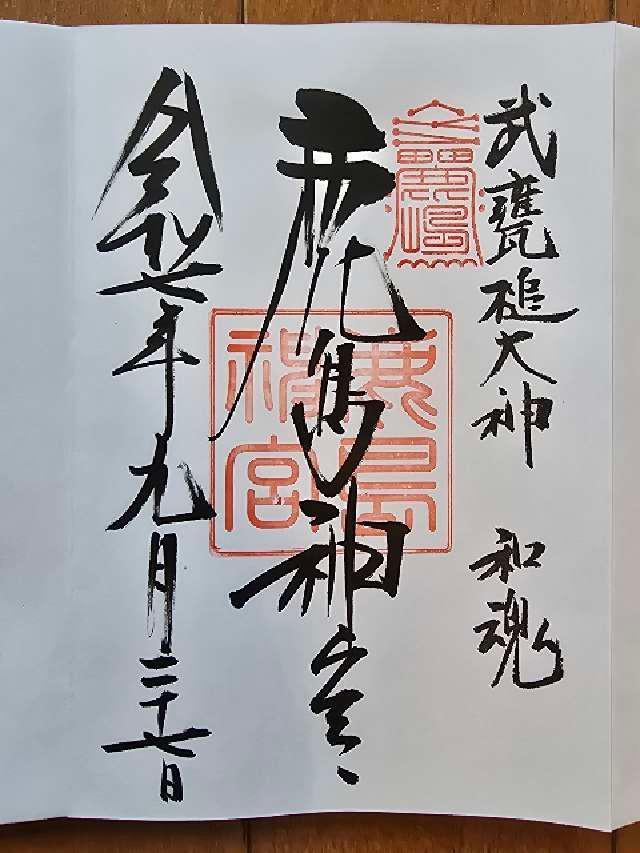 武甕槌大神 和魂
鹿嶋
鹿島神宮
鹿島神宮
令和七年九月二十七日